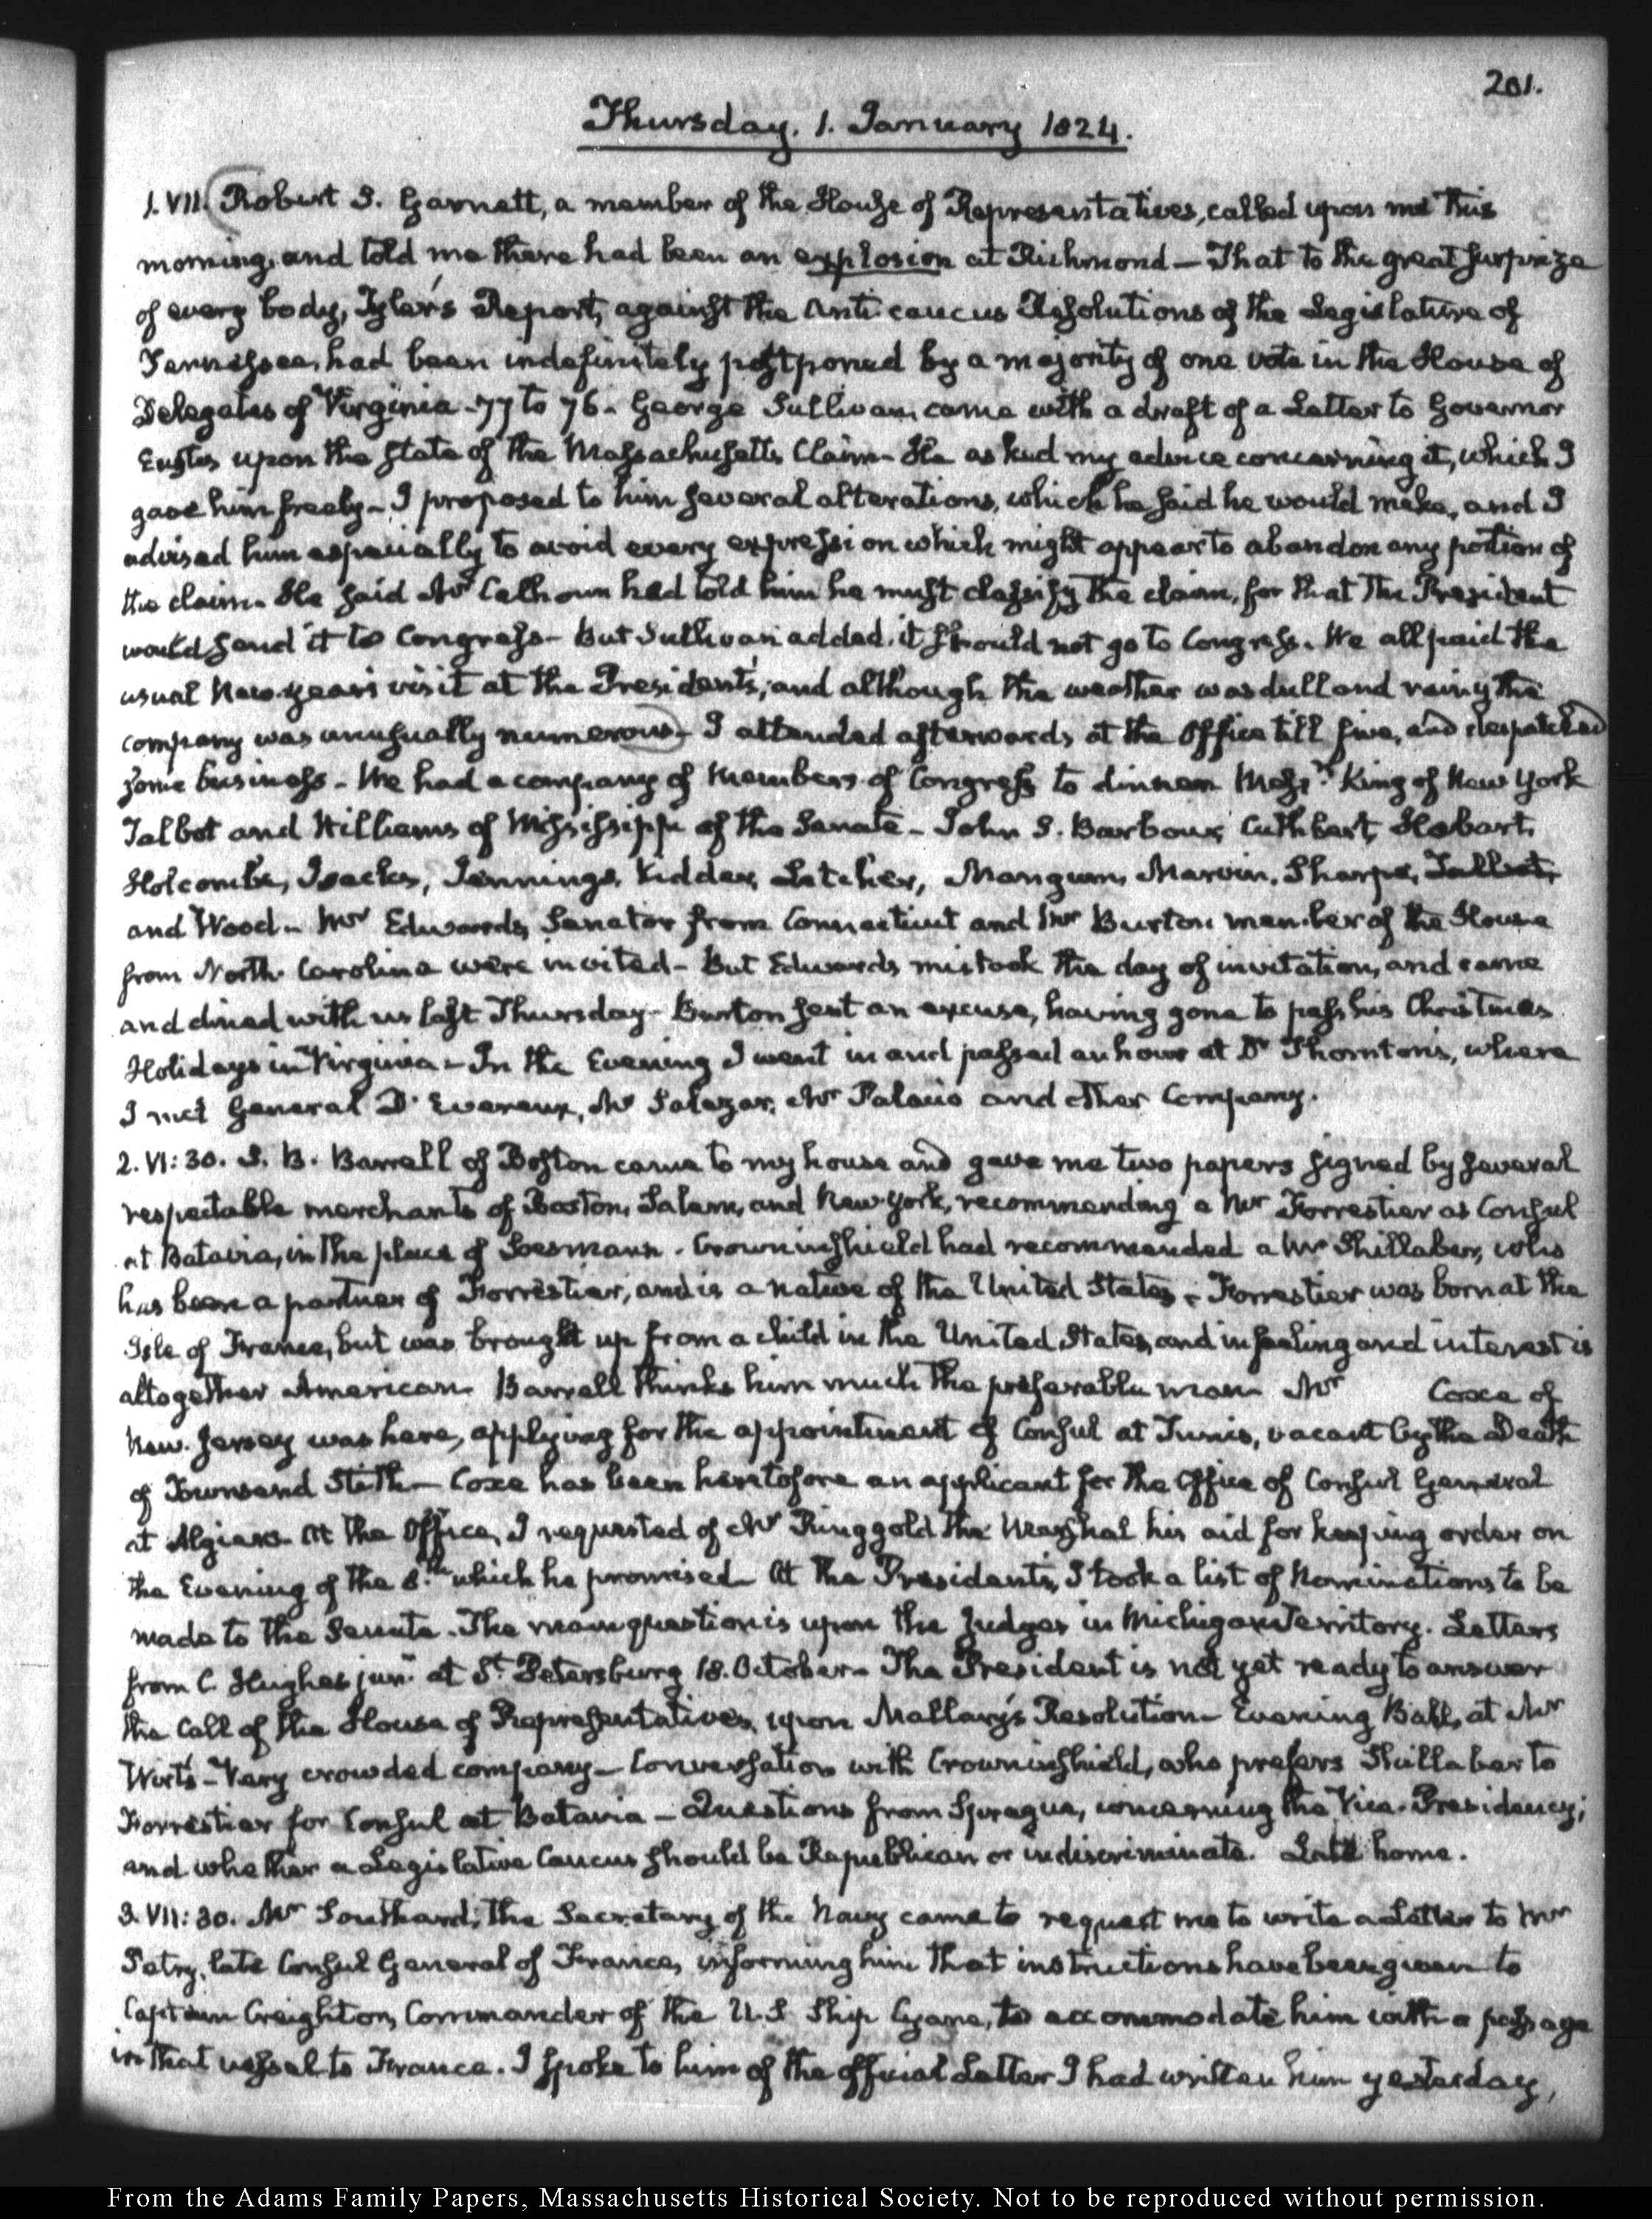 201.
Thursday. 1. January 1824.
1. VII. Robert S. Garnett, a member of the House of Representatives, called upon me this
morning, and told me there had been an explosion at Richmond — That to the great surprize
of every body, Tyler's Report, against the Anti caucus Resolutions of the Legislature of
Tennessee, had been indefinitely postponed by a majority of one vote in the House of
Delegates of Virginia - 77 to 76. George Sullivan, came with a draft of a Letter to Governor
Eustis upon the state of the Massachusetts Claim - He asked my advice concerning it, which I
gave him freely - I proposed to him several alterations, which he said he would make, and I
advised him especially to avoid every expression which might appear to abandon any portion of
the claim. He said Mr Calhoun had told him he must classify the claim, for that the President
would send it to Congress - But Sullivan added, it should not go to Congress. We all paid the
usual New-years visit at the President's, and although the weather was dull and rainy the
company was unusually numerous - I attended afterwards at the Office till five, and despatched
some business - We had a company of Members of Congress to dinner Messrs King of New York
Talbot and Williams of Mississippi of the Senate - John S. Barbour, Cuthbert, Hobart,
Holcombe, Isacks, Jennings, Kidder, Letcher, Mangum, Marvin, Sharpe, Talbot,
and Wood - Mr Edwards, Senator from Connecticut and Mr Burton member of the House
from North Carolina were invited - But Edwards mistook the day of invitation, and came
and dined with us last Thursday - Burton sent an excuse, having gone to pass his Christmas
Holidays in Virginia - In the Evening I went in and passed an hour at Dr Thornton's, where
I met General D'Evereux, Mr Salazar, Mr Palacio and other Company.
2. VI: 30. S. B. Barrell of Boston came to my house and gave me two papers signed by several
respectable merchants of Boston, Salem, and New York, recommending a Mr Forrestier as Consul
at Batavia, in the place of Soesmann. Crowninshield had recommended a Mr Shillaber, who
has been a partner of Forrestier, and is a native of the United States - Forrestier was born at the
Isle of France, but was brought up from a child in the United States, and in feeling and interest is
altogether American. Barrell thinks him much the preferable man. Mr Coxe of
New-Jersey was here, applying for the appointment of Consul at Tunis, vacant by the Death
of Townsend Stith - Coxe has been heretofore an applicant for the Office of Consul General
at Algiers. At the Office, I requested of Mr Ringgold the Marshal his aid for keeping order on
the Evening of the 8.th which he promised - At the President's, I took a list of Nominations to be
made to the Senate - The main question is upon the Judges in Michigan Territory. Letters
from C. Hughes junr. at St. Petersburg 18. October - The President is not yet ready to answer
the Call of the House of Representatives, upon Mallary's Resolution - Evening Ball, at Mr
Wirt's - Very crowded company - Conversation with Crowninshield, who prefers Shillaber to
Forrestier for Consul at Batavia - Questions from Sprague, concerning the Vice-Presidency;
and whether a Legislative Caucus should be Republican or indiscriminate. Late home.
3. VII: 30. Mr Southard, the Secretary of the Navy came to request me to write a Letter to Mr
Petry, late Consul General of France, informing him that instructions have been given to
Captain Creighton, Commander of the U.S Ship Cyane, to accommodate him with a passage
in that vessel to France. I spoke to him of the official Letter I had written him yesterday,
From the Adams Family Papers, Massachusetts Historical Society. Not to be reproduced without permission.